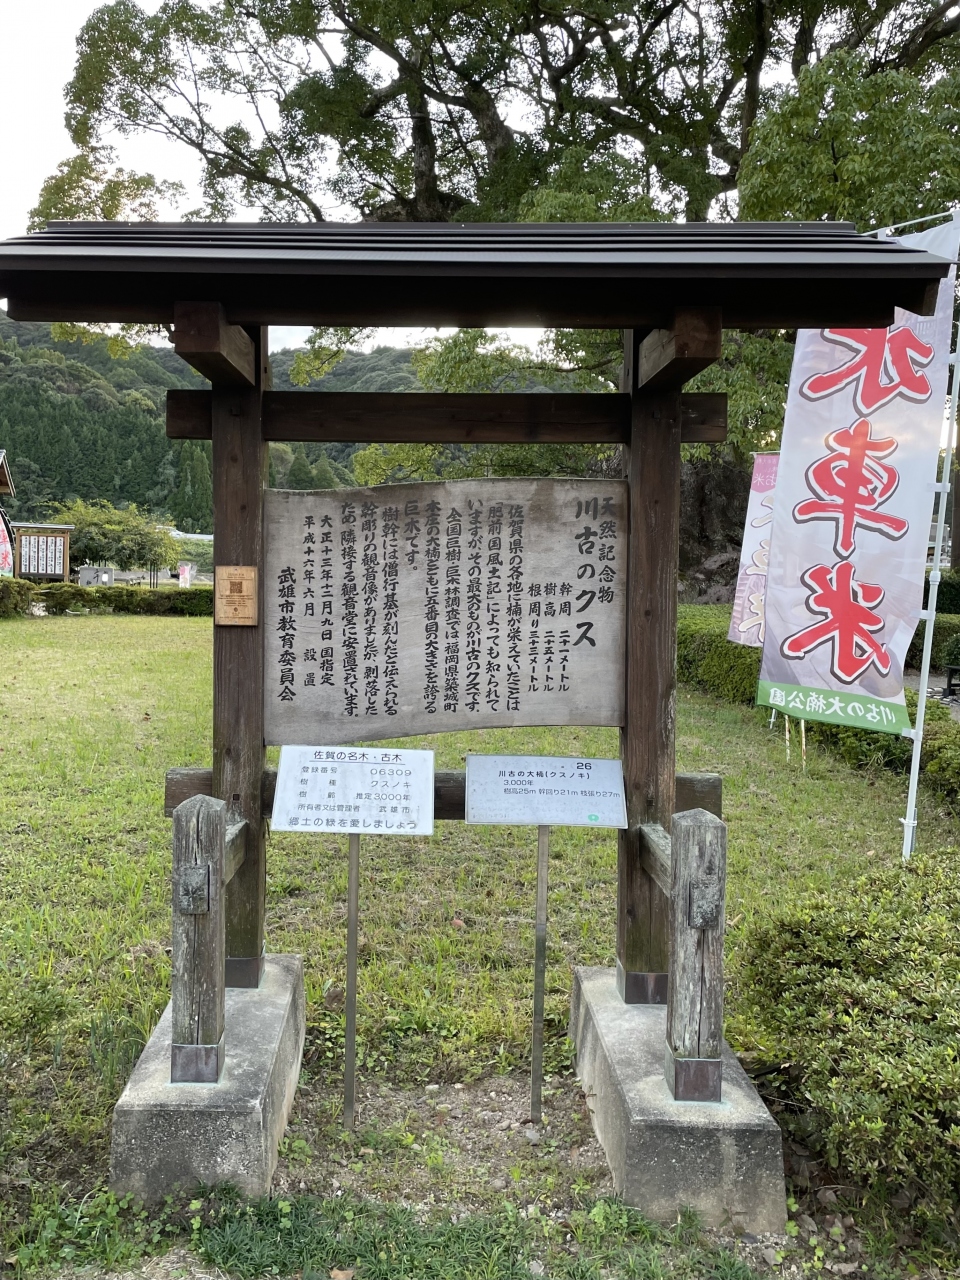 天然記念物
川古のクス
幹周 二十一メートル
樹高 二十五メートル
根周り三十三メートル
佐賀県の各地に楠が栄えていたことは
肥前国風土記によっても知られて
いますが、その最大のものが川古のクスです。
全国巨樹・巨木林調査では福岡県築城町
本庄の大楠とともに五番目の大きさを誇る
巨木です。
樹幹には僧行基が刻んだと伝えられる
幹彫りの観音像がありましたが、剥落した
ため、隣接する観音堂に安置されています。
大正十三年十二月九日 国指定
平成十六年六月 設置
武雄市教育委員会
佐賀の名木・古木
登録番号 06309
樹種 クスノキ
樹齢 推定3,000年
所有者又は管理者 武雄市
郷土の緑を愛しましょう
26
川古の大楠(クスノキ)
3,000年
樹高25m 幹回り21m 枝張り27m
水車米
川古の大楠公園